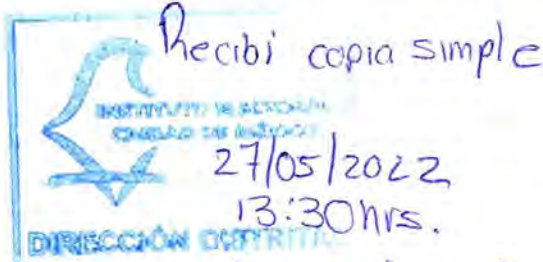 Recibí copia simple
INSTITUTO ELECTORAL
CIUDAD DE MÉXICO
27/05/2022
13:30hrs.
DIRECCIÓN DISTRITAL